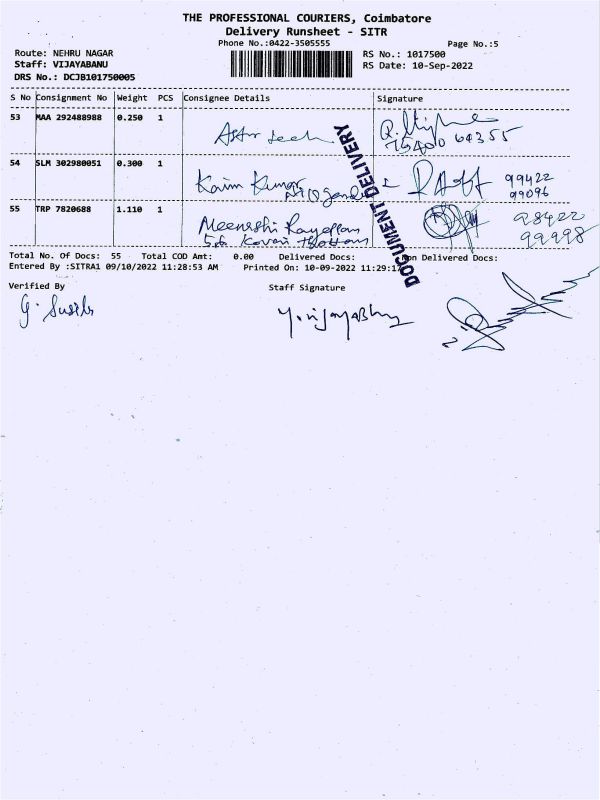 THE PROFESSIONAL COURIERS, Coimbatore
Delivery Runsheet - SITR
Phone No.:0422-3505555 Page No.:5
Route: NEHRU NAGAR RS No.: 1017500
Staff: VIJAYABANU RS Date: 10-Sep-2022
DRS No.: DCJB101750005
S No Consignment No Weight PCS Consignee Details Signature
53 MAA 292488988 0.250 1
54 SLM 302980051 0.300 1 Kumar 99422
99096
55 TRP 7820688 1.110 1 98422
56 99998
DOCUMENT DELIVERY
Total No. Of Docs: 55 Total COD Amt: 0.00 Delivered Docs: Non Delivered Docs:
Entered By :SITRA1 09/10/2022 11:28:53 AM Printed On: 10-09-2022 11:29:17
Verified By Staff Signature